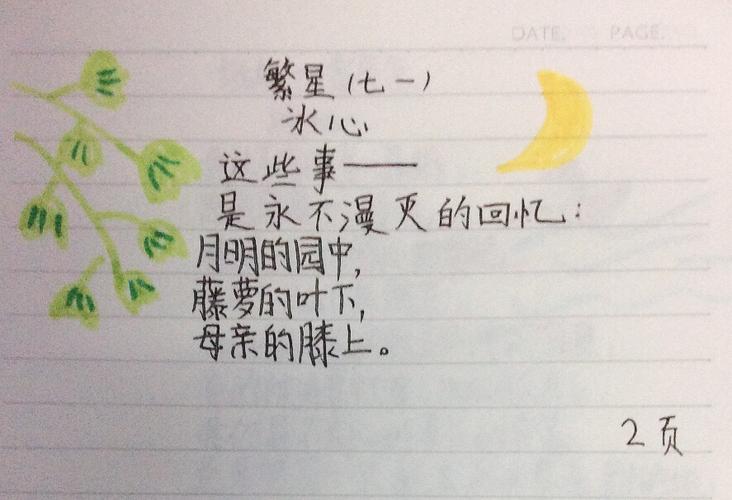 DATE. PAGE.
繁星（七一）
冰心
这些事——
是永不漫灭的回忆：
月明的园中，
藤萝的叶下，
母亲的膝上。
2页